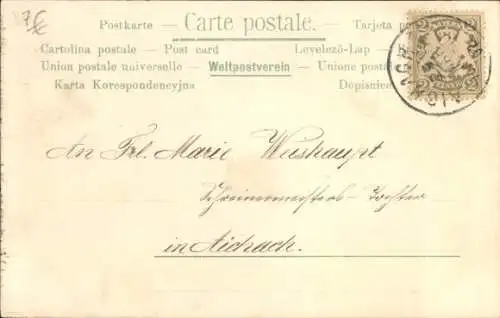 7€
Postkarte — Carte postale. — Tarjeta po
Cartolina postale — Post card Levelező-Lap —
Union postale universelle — Weltpostverein — Unione posta
Karta Korespondencyjna Dopisnice
An Frl. Marie Weishaupt
Schreinermeisters-Tochter
in Aichach.